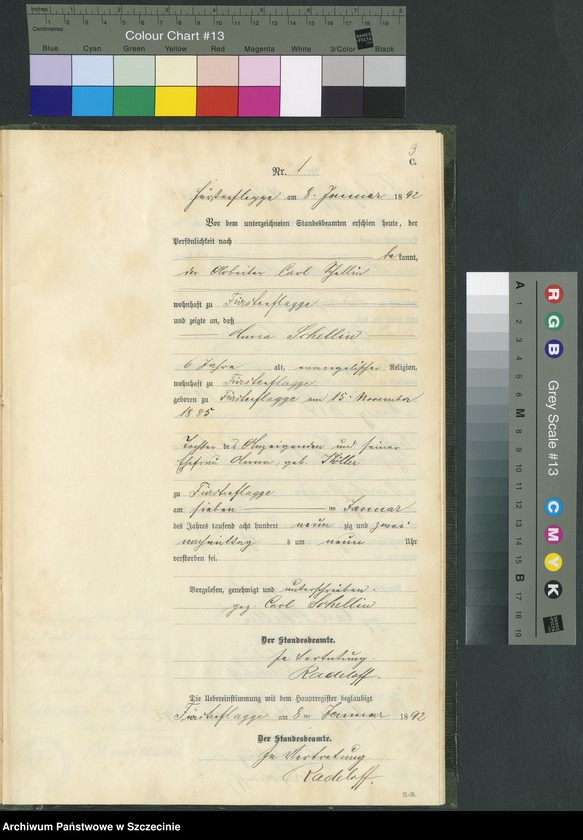 Inches 1 2 3 4 5 6 7 8
Centimetres 1 2 3 4 5 6 7 8 9 10 11 12 13 14 15 16 17 18 19
Colour Chart #13
Blue Cyan Green Yellow Red Magenta White 3/Color Black
3
C.
Nr. 1
Fürstenflagge am 8. Januar 1892
Vor dem unterzeichneten Standesbeamten erschien heute, der
Persönlichkeit nach
bekannt,
der Arbeiter Carl Schellin
wohnhaft zu Fürstenflagge
und zeigte an, daß
Anna Schellin
6 Jahre alt, evangelischer Religion,
wohnhaft zu Fürstenflagge
geboren zu Fürstenflagge am 15. November
1885
Tochter des Anzeigenden und seiner
Ehefrau Anna, geb. Köller
zu Fürstenflagge
am sieben ten Januar
des Jahres tausend acht hundert neunzig und zwei
nachmittags um neun Uhr
verstorben sei.
Vorgelesen, genehmigt und unterschrieben.
gez. Carl Schellin
Der Standesbeamte.
In Vertretung.
Radeloff.
Die Uebereinstimmung mit dem Hauptregister beglaubigt
Fürstenflagge am 8ten Januar 1892
Der Standesbeamte.
In Vertretung
Radeloff.
A 1 2 3 4 5 6 M 8 9 10 11 12 13 14 15 B 17 18 19
R G B
Grey Scale #13
C M Y K
Archiwum Państwowe w Szczecinie